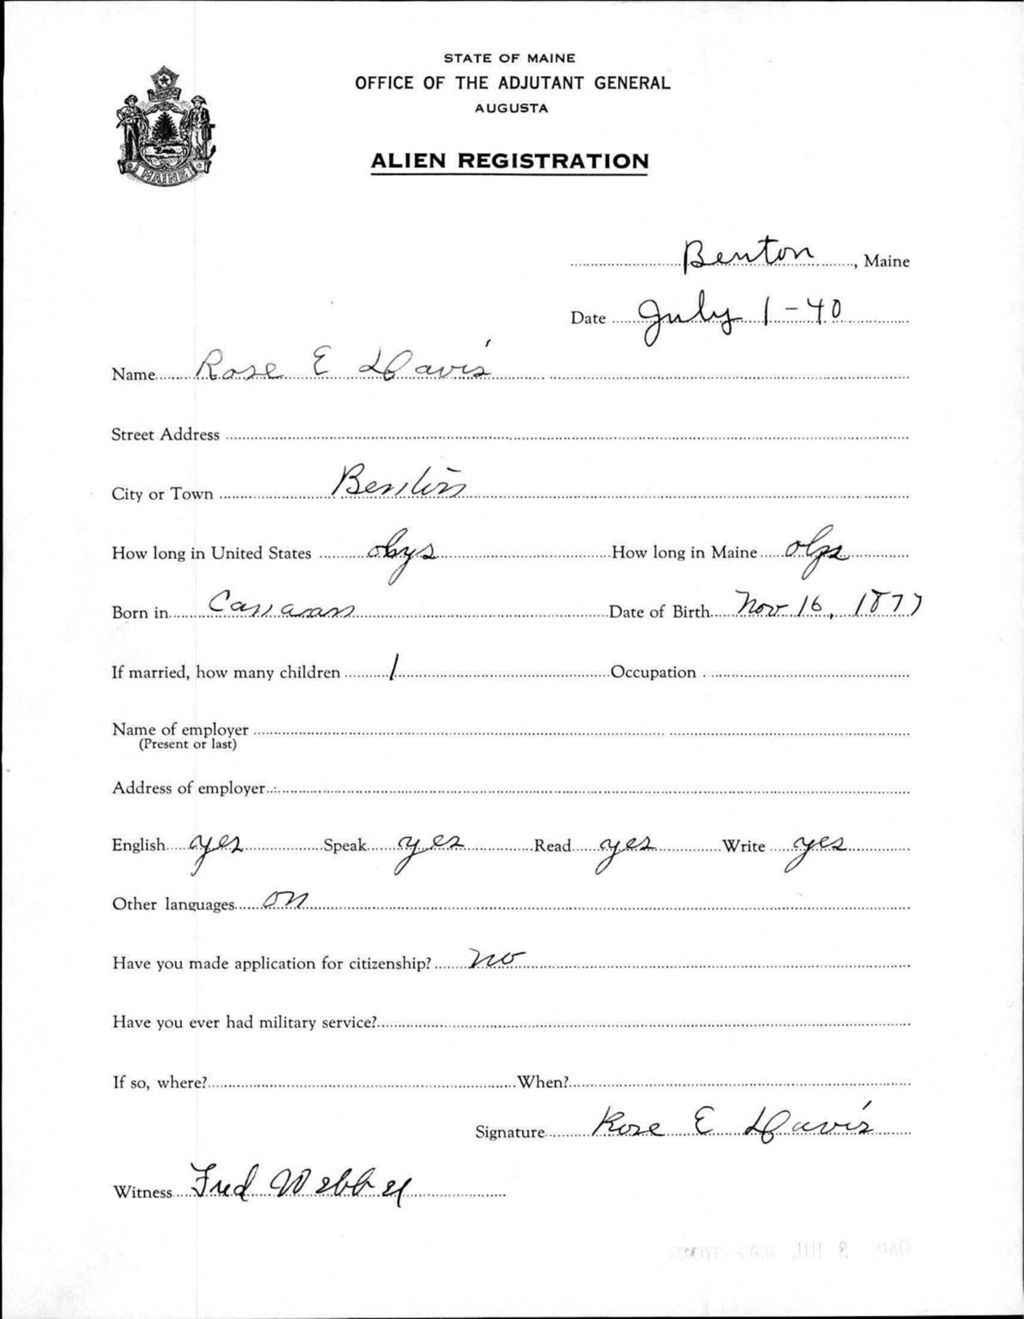 STATE OF MAINE
OFFICE OF THE ADJUTANT GENERAL
AUGUSTA
ALIEN REGISTRATION
MAINE
Benton, Maine
Date July 1-40
Name Rose E Davis
Street Address
City or Town Benton
How long in United States How long in Maine
Born in Canaan Date of Birth Nov 16, 1877
If married, how many children 1 Occupation
Name of employer
(Present or last)
Address of employer
English yes Speak yes Read yes Write yes
Other languages on
Have you made application for citizenship? no
Have you ever had military service?
If so, where? When?
Signature Rose E Davis
Witness Fred Webber
JUL